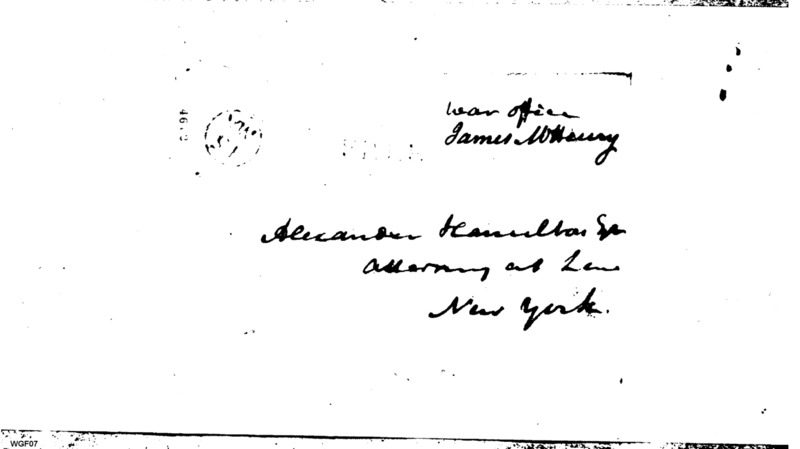 War office
James McHenry
Alexander Hamilton Esqr
Attorney at Law
New York.
WGF07